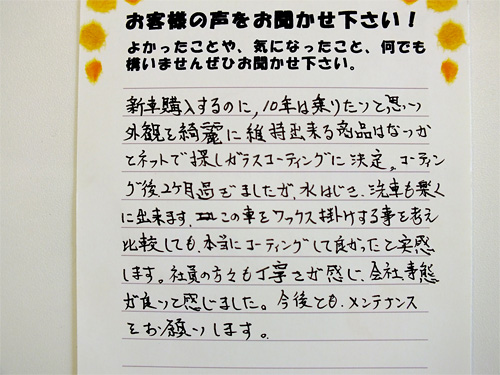 お客様の声をお聞かせ下さい！
よかったことや、気になったこと、何でも
構いませんぜひお聞かせ下さい。
新車購入するのに、10年は乗りたいと思い
外観を綺麗に維持出来る商品はないか
とネットで探しガラスコーティングに決定。コーティン
グ後、2ヶ月過ぎましたが、水はじき、洗車も楽く
に出来ます。この車をワックス掛けする事を考え
比較しても、本当にコーティングして良かったと実感
します。社員の方々も丁寧さが感じ、会社事態
が良いと感じました。今後とも、メンテナンス
をお願いします。